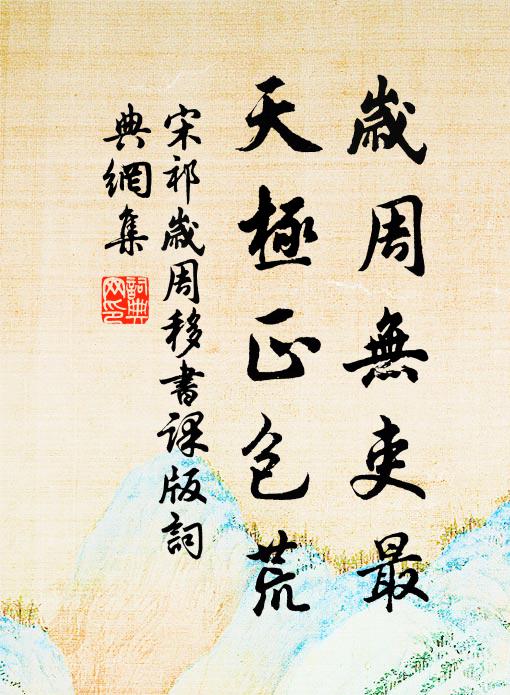 歲周無吏最
天極正包荒
宋祁歲周移書课版詞
典網集
詞典
网印